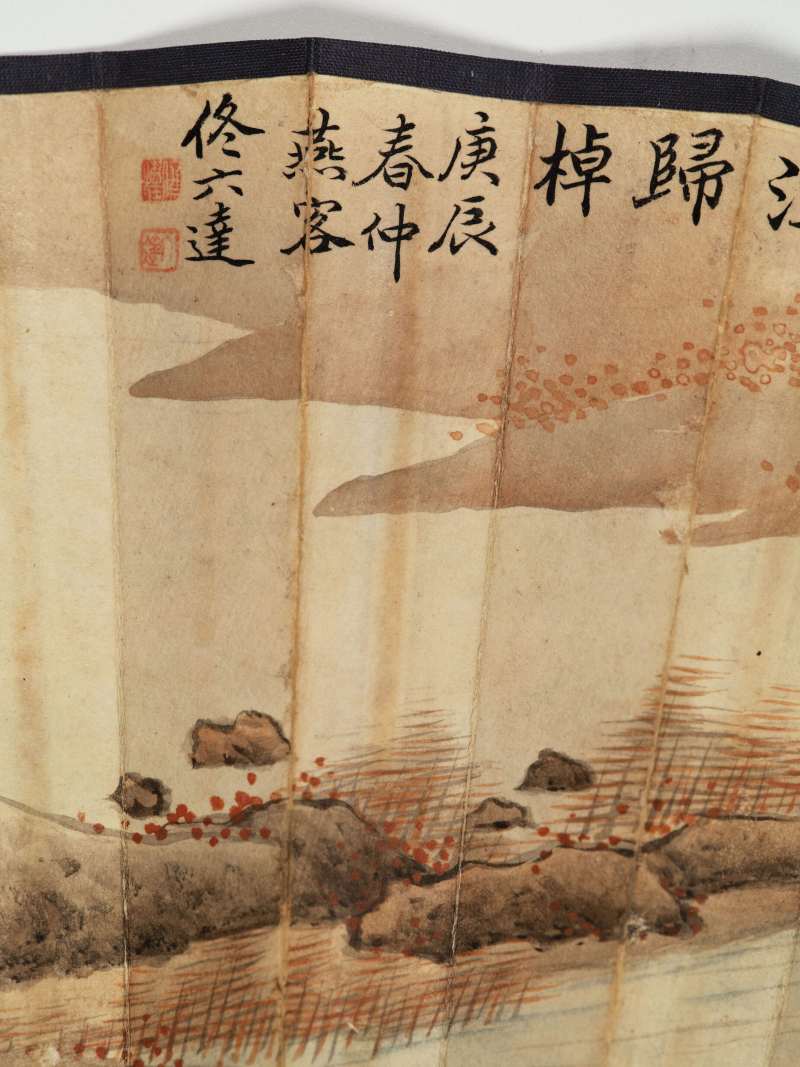 歸
棹
庚辰
春仲
燕客
佟六達